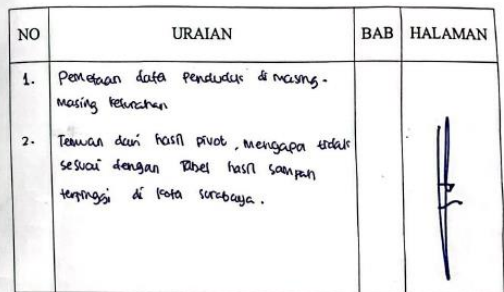 NO URAIAN BAB HALAMAN
1. Pemetaan data penduduk di masing-
masing kelurahan
2. Temuan dari hasil pivot, mengapa tidak
sesuai dengan Tabel hasil sampah
tertinggi di Kota Surabaya.